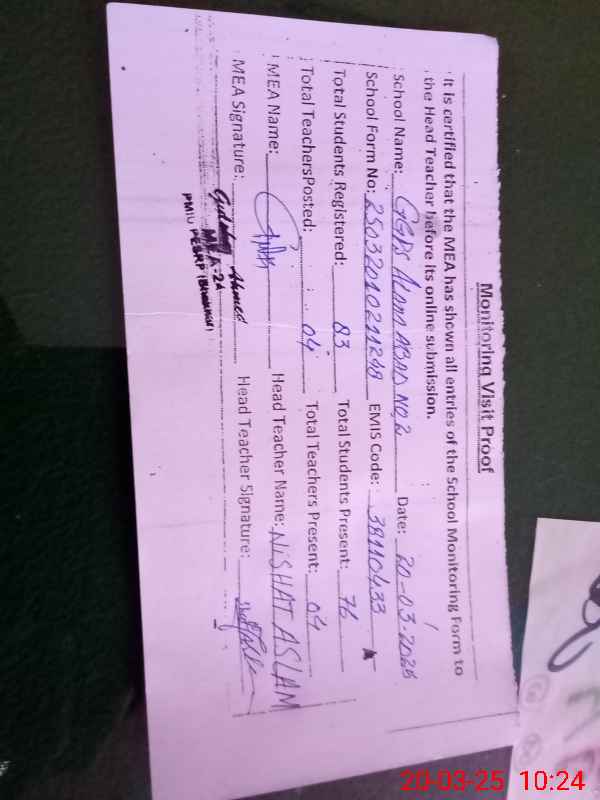 Monitoring Visit Proof
It is certified that the MEA has shown all entries of the School Monitoring Form to
the Head Teacher before its online submission.
School Name: GGPS Alam ABAD NO.2 Date: 20-03-2025
School Form No: 2503201021 EMIS Code: 38110433
Total Students Registered: 83 Total Students Present: 76
Total TeachersPosted: 04 Total Teachers Present: 04
MEA Name: Head Teacher Name: NiSHAT ASLAM
MEA Signature: Head Teacher Signature:
Ahmed
MEA-24
20-03-25 10:24